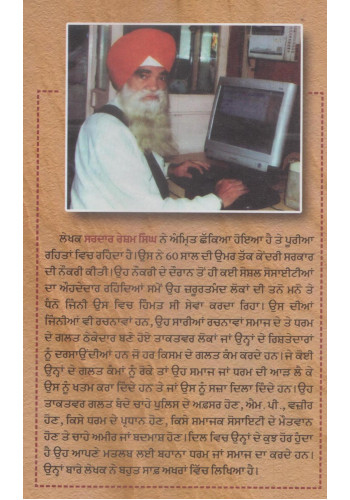 ਲੇਖਕ ਸਰਦਾਰ ਰੇਸ਼ਮ ਸਿੰਘ ਨੇ ਅੰਮ੍ਰਿਤ ਛੱਕਿਆ ਹੋਇਆ ਹੈ ਤੇ ਪੂਰੀਆ
ਰਹਿਤਾਂ ਵਿਚ ਰਹਿਦਾ ਹੈ। ਉਸ ਨੇ 60 ਸਾਲ ਦੀ ਉਮਰ ਤੱਕ ਕੇਂਦਰੀ ਸਰਕਾਰ
ਦੀ ਨੌਕਰੀ ਕੀਤੀ। ਉਹ ਨੌਕਰੀ ਦੇ ਦੌਰਾਨ ਤੋਂ ਹੀ ਕਈ ਸੋਸ਼ਲ ਸੋਸਾਈਟੀਆਂ
ਦਾ ਔਹਦੇਦਾਰ ਰਹਿਦਿਆਂ ਸਮੇਂ ਉਹ ਜ਼ਰੂਰਤਮੰਦ ਲੋਕਾਂ ਦੀ ਤਨੋਂ ਮਨੋਂ ਤੇ
ਧੰਨੋਂ ਜਿੰਨੀ ਉਸ ਵਿਚ ਹਿਮਤ ਸੀ ਸੇਵਾ ਕਰਦਾ ਰਿਹਾ। ਉਸ ਦੀਆਂ
ਜਿੰਨੀਆਂ ਵੀ ਰਚਨਾਵਾਂ ਹਨ, ਉਹ ਸਾਰੀਆਂ ਰਚਨਾਵਾਂ ਸਮਾਜ ਦੇ ਤੇ ਧਰਮ
ਦੇ ਗਲਤ ਠੇਕੇਦਾਰ ਬਣੇ ਹੋਏ ਤਾਕਤਵਰ ਲੋਕਾਂ ਜਾਂ ਉਨ੍ਹਾਂ ਦੇ ਰਿਸ਼ਤੇਦਾਰਾਂ
ਨੂੰ ਦਰਸਾਉਂਦੀਆਂ ਹਨ ਜੋ ਹਰ ਕਿਸਮ ਦੇ ਗਲਤ ਕੰਮ ਕਰਦੇ ਹਨ। ਜੇ ਕੋਈ
ਉਨ੍ਹਾਂ ਦੇ ਗਲਤ ਕੰਮਾਂ ਨੂੰ ਰੋਕੇ ਤਾਂ ਉਹ ਸਮਾਜ ਜਾਂ ਧਰਮ ਦੀ ਆੜ ਲੈ ਕੇ
ਉਸ ਨੂੰ ਖਤਮ ਕਰਾ ਦਿੰਦੇ ਹਨ ਤੇ ਜਾਂ ਉਸ ਨੂੰ ਸਜ਼ਾ ਦਿਲਾ ਦਿੰਦੇ ਹਨ। ਉਹ
ਤਾਕਤਵਰ ਗਲਤ ਬੰਦੇ ਚਾਹੇ ਪੁਲਿਸ ਦੇ ਅਫ਼ਸਰ ਹੋਣ, ਐਮ. ਪੀ., ਵਜ਼ੀਰ
ਹੋਣ, ਕਿਸੇ ਧਰਮ ਦੇ ਪ੍ਰਧਾਨ ਹੋਣ, ਕਿਸੇ ਸਮਾਜਕ ਸੋਸਾਇਟੀ ਦੇ ਮੋਤਵਾਨ
ਹੋਣ ਤੇ ਚਾਹੇ ਅਮੀਰ ਜਾਂ ਬਦਮਾਸ਼ ਹੋਣ। ਦਿਲ ਵਿਚ ਉਨ੍ਹਾਂ ਦੇ ਕੁਝ ਹੋਰ ਹੁੰਦਾ
ਹੈ ਉਹ ਆਪਣੇ ਮਤਲਬ ਲਈ ਬਹਾਨਾ ਧਰਮ ਜਾਂ ਸਮਾਜ ਦਾ ਕਰਦੇ ਹਨ।
ਉਨ੍ਹਾਂ ਬਾਰੇ ਲੇਖਕ ਨੇ ਬਹੁਤ ਸਾਫ਼ ਅਖਰਾਂ ਵਿੱਚ ਲਿਖਿਆ ਹੈ।